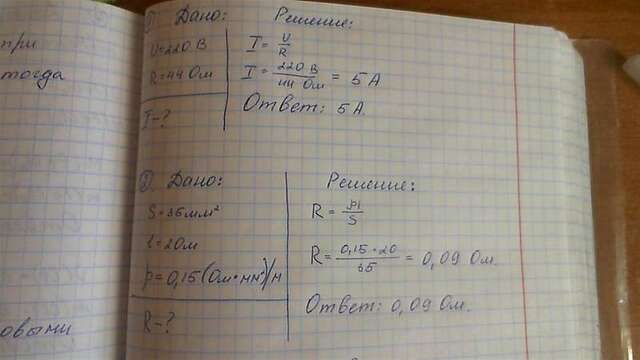 при
тогда
овыми
① Дано:
U=220 В
R=44 Ом
I-?
Решение:
I = U/R
I = 220 В/44 Ом = 5 А
Ответ: 5 А.
② Дано:
S=35мм²
l=20м
ρ=0,15(Ом·мм²)/м
R-?
Решение:
R = ρl/S
R = 0,15·20/35 = 0,09 Ом.
Ответ: 0,09 Ом.